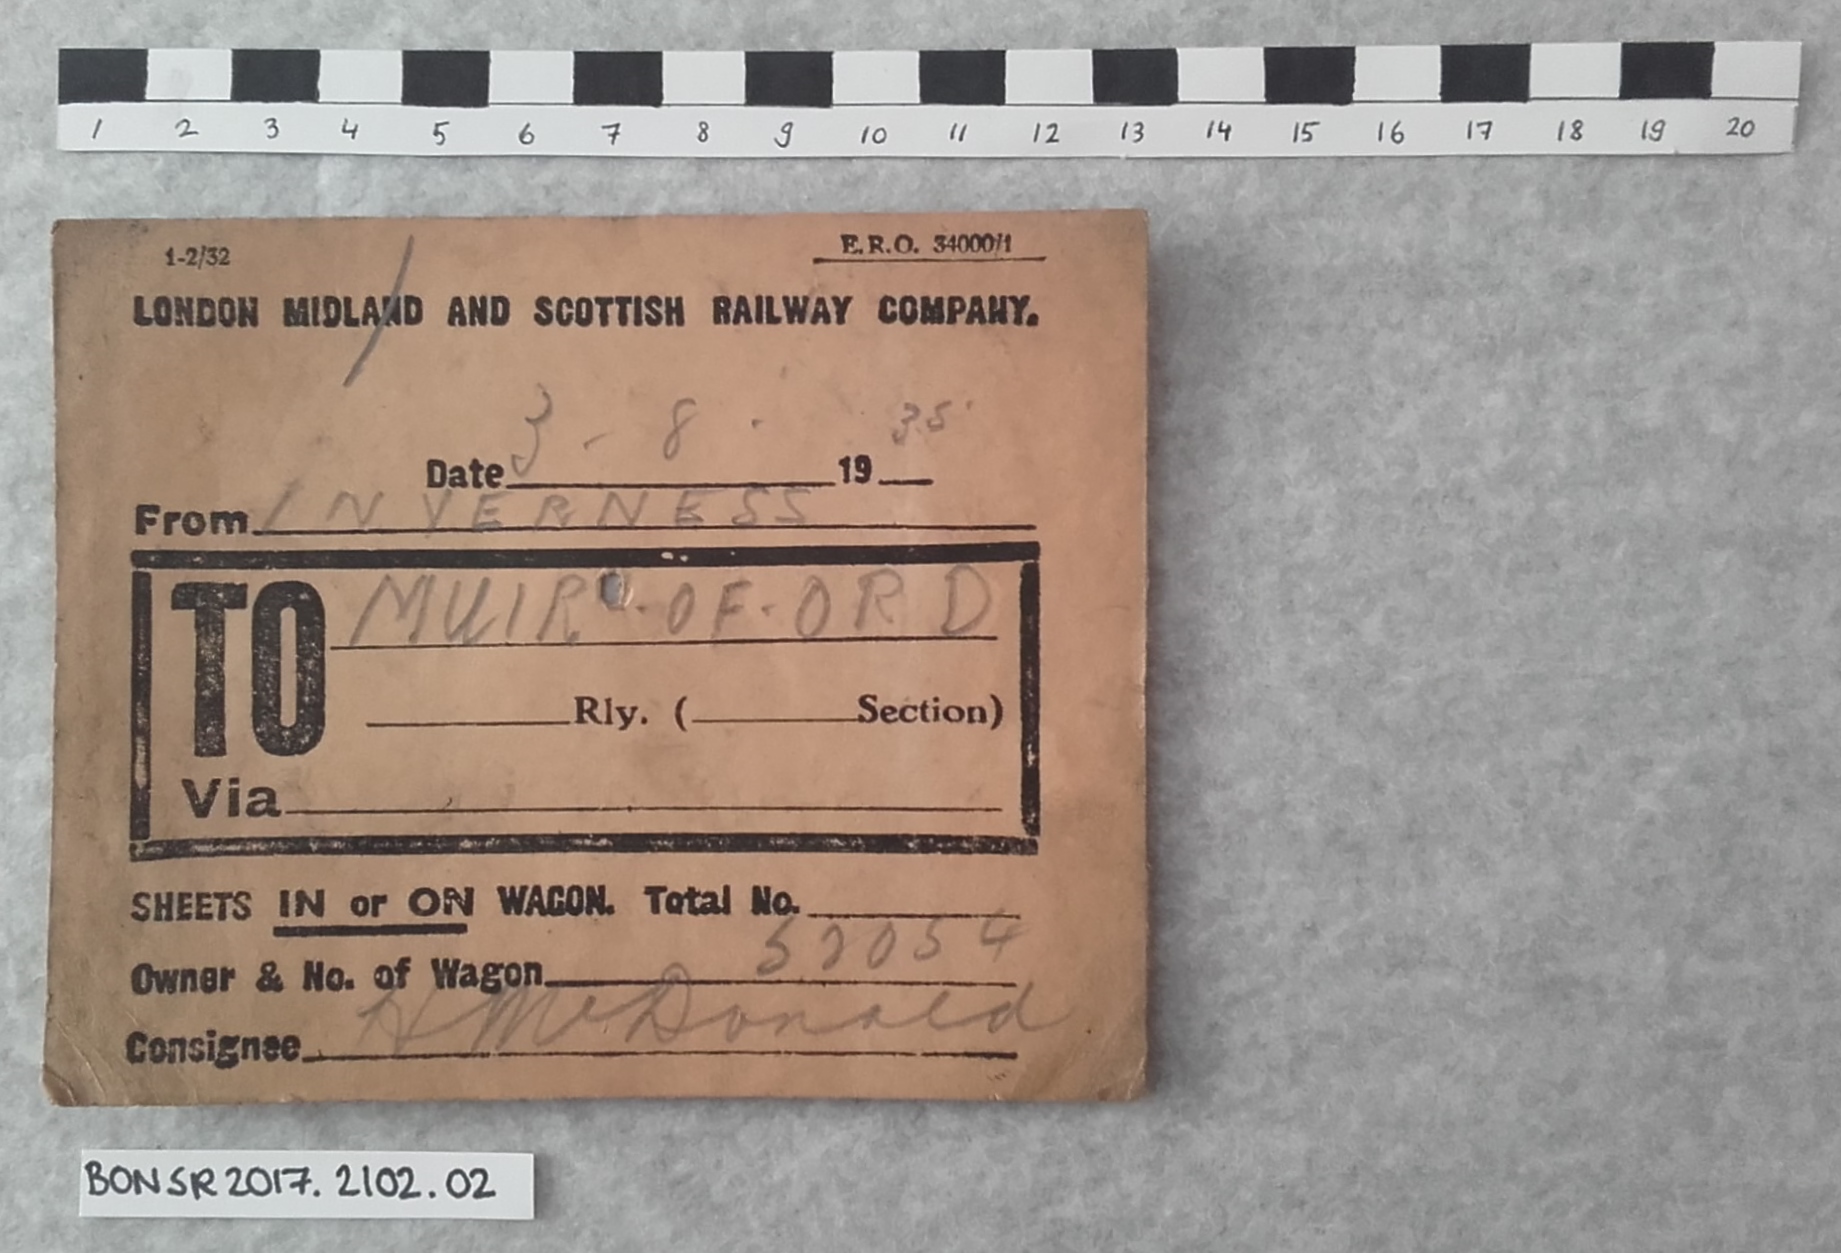 1 2 3 4 5 6 7 8 9 10 11 12 13 14 15 16 17 18 19 20
1-2/32 E.R.O. 34000/1
LONDON MIDLAND AND SCOTTISH RAILWAY COMPANY.
Date 3 - 8 . 19 35
From INVERNESS
TO MUIR-OF-ORD
Rly. ( Section)
Via
SHEETS IN or ON WAGON. Total No.
Owner & No. of Wagon 52054
Consignee H McDonald
BONSR2017.2102.02